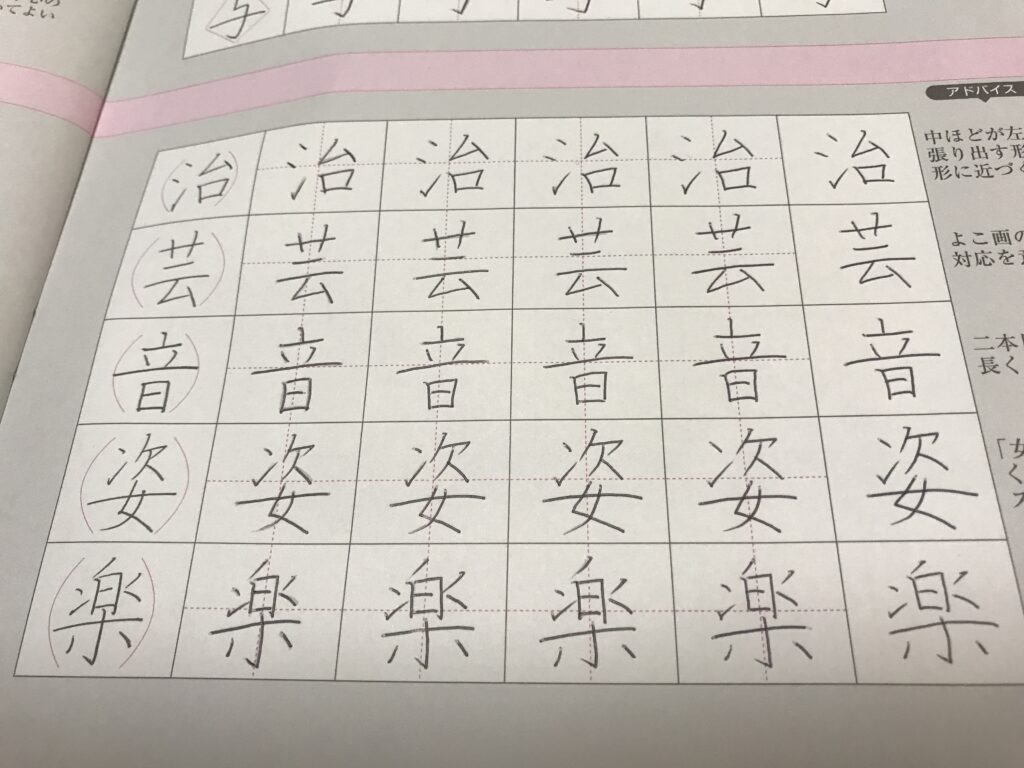 てよい
アドバイス
治 治 治 治 治 治
中ほどが左
張り出す形
形に近づく
芸 芸 芸 芸 芸 芸
よこ画の
対応を
音 音 音 音 音 音
二本
長く
姿 姿 姿 姿 姿 姿
「女
く
楽 楽 楽 楽 楽 楽